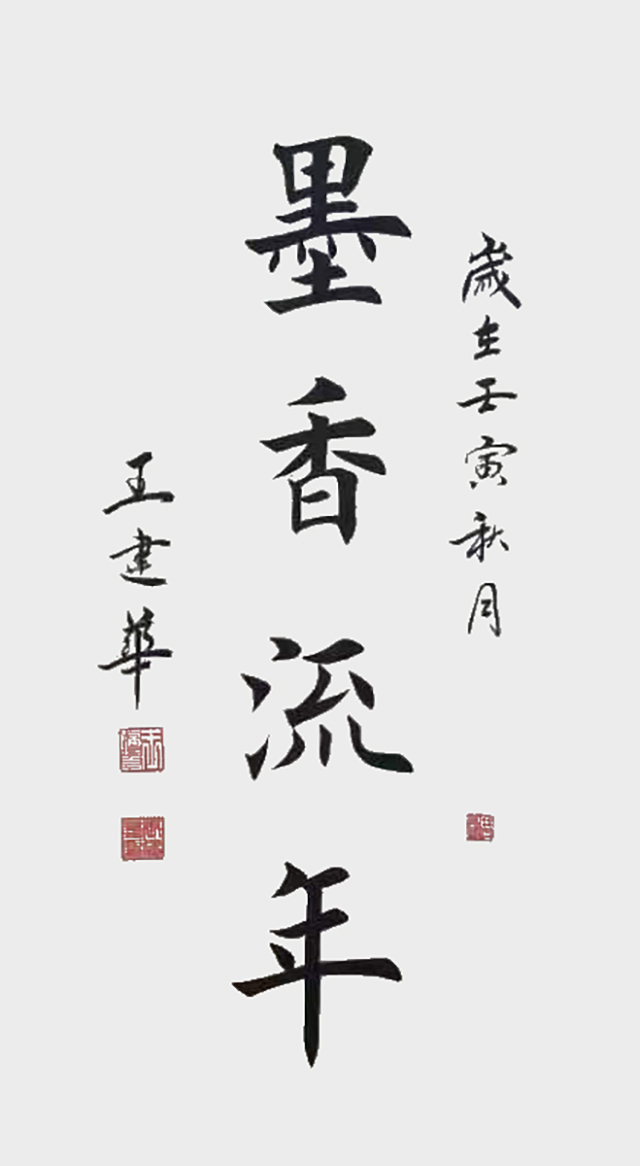 歲在壬寅秋月
墨香流年
王建華